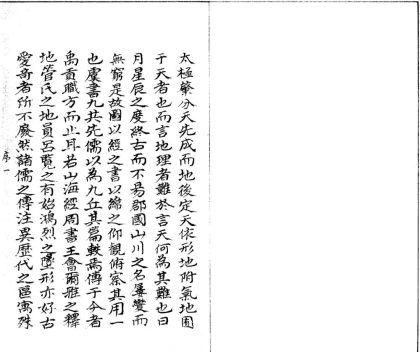 太極肇分天先成而地後定天依形地附氣地囿
于天者也而言地理者難於言天何為其難也日
月星辰之度終古而不易郡國山川之名屢變而
無窮是故圖以經之書以緯之仰觀俯察其用一
也虞書九共先儒以為九丘其篇軼焉傳于今者
禹貢職方而止耳若山海經周書王會爾雅之釋
地管氏之地員呂覽之有始鴻烈之墬形亦好古
愛奇者所不廢然諸儒之傳注異歷代之區寓殊
序一